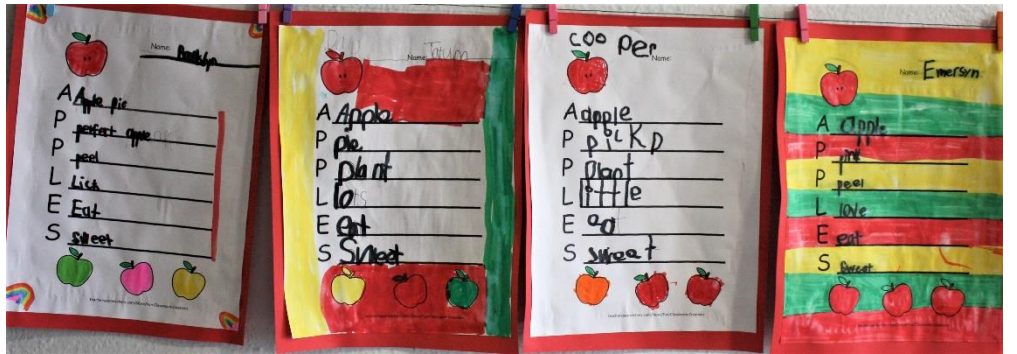 Name:
A Apple pie
P perfect apple
P peel
L Lick
E Eat
S Sweet
Name: Tatum
A Apple
P pie
P plant
L lo
E eat
S Sweet
Cooper Name:
A apple
P pickp
P plant
L little
E eat
S sweet
Name: Emersyn
A apple
P pink
P peel
L love
E eat
S sweet